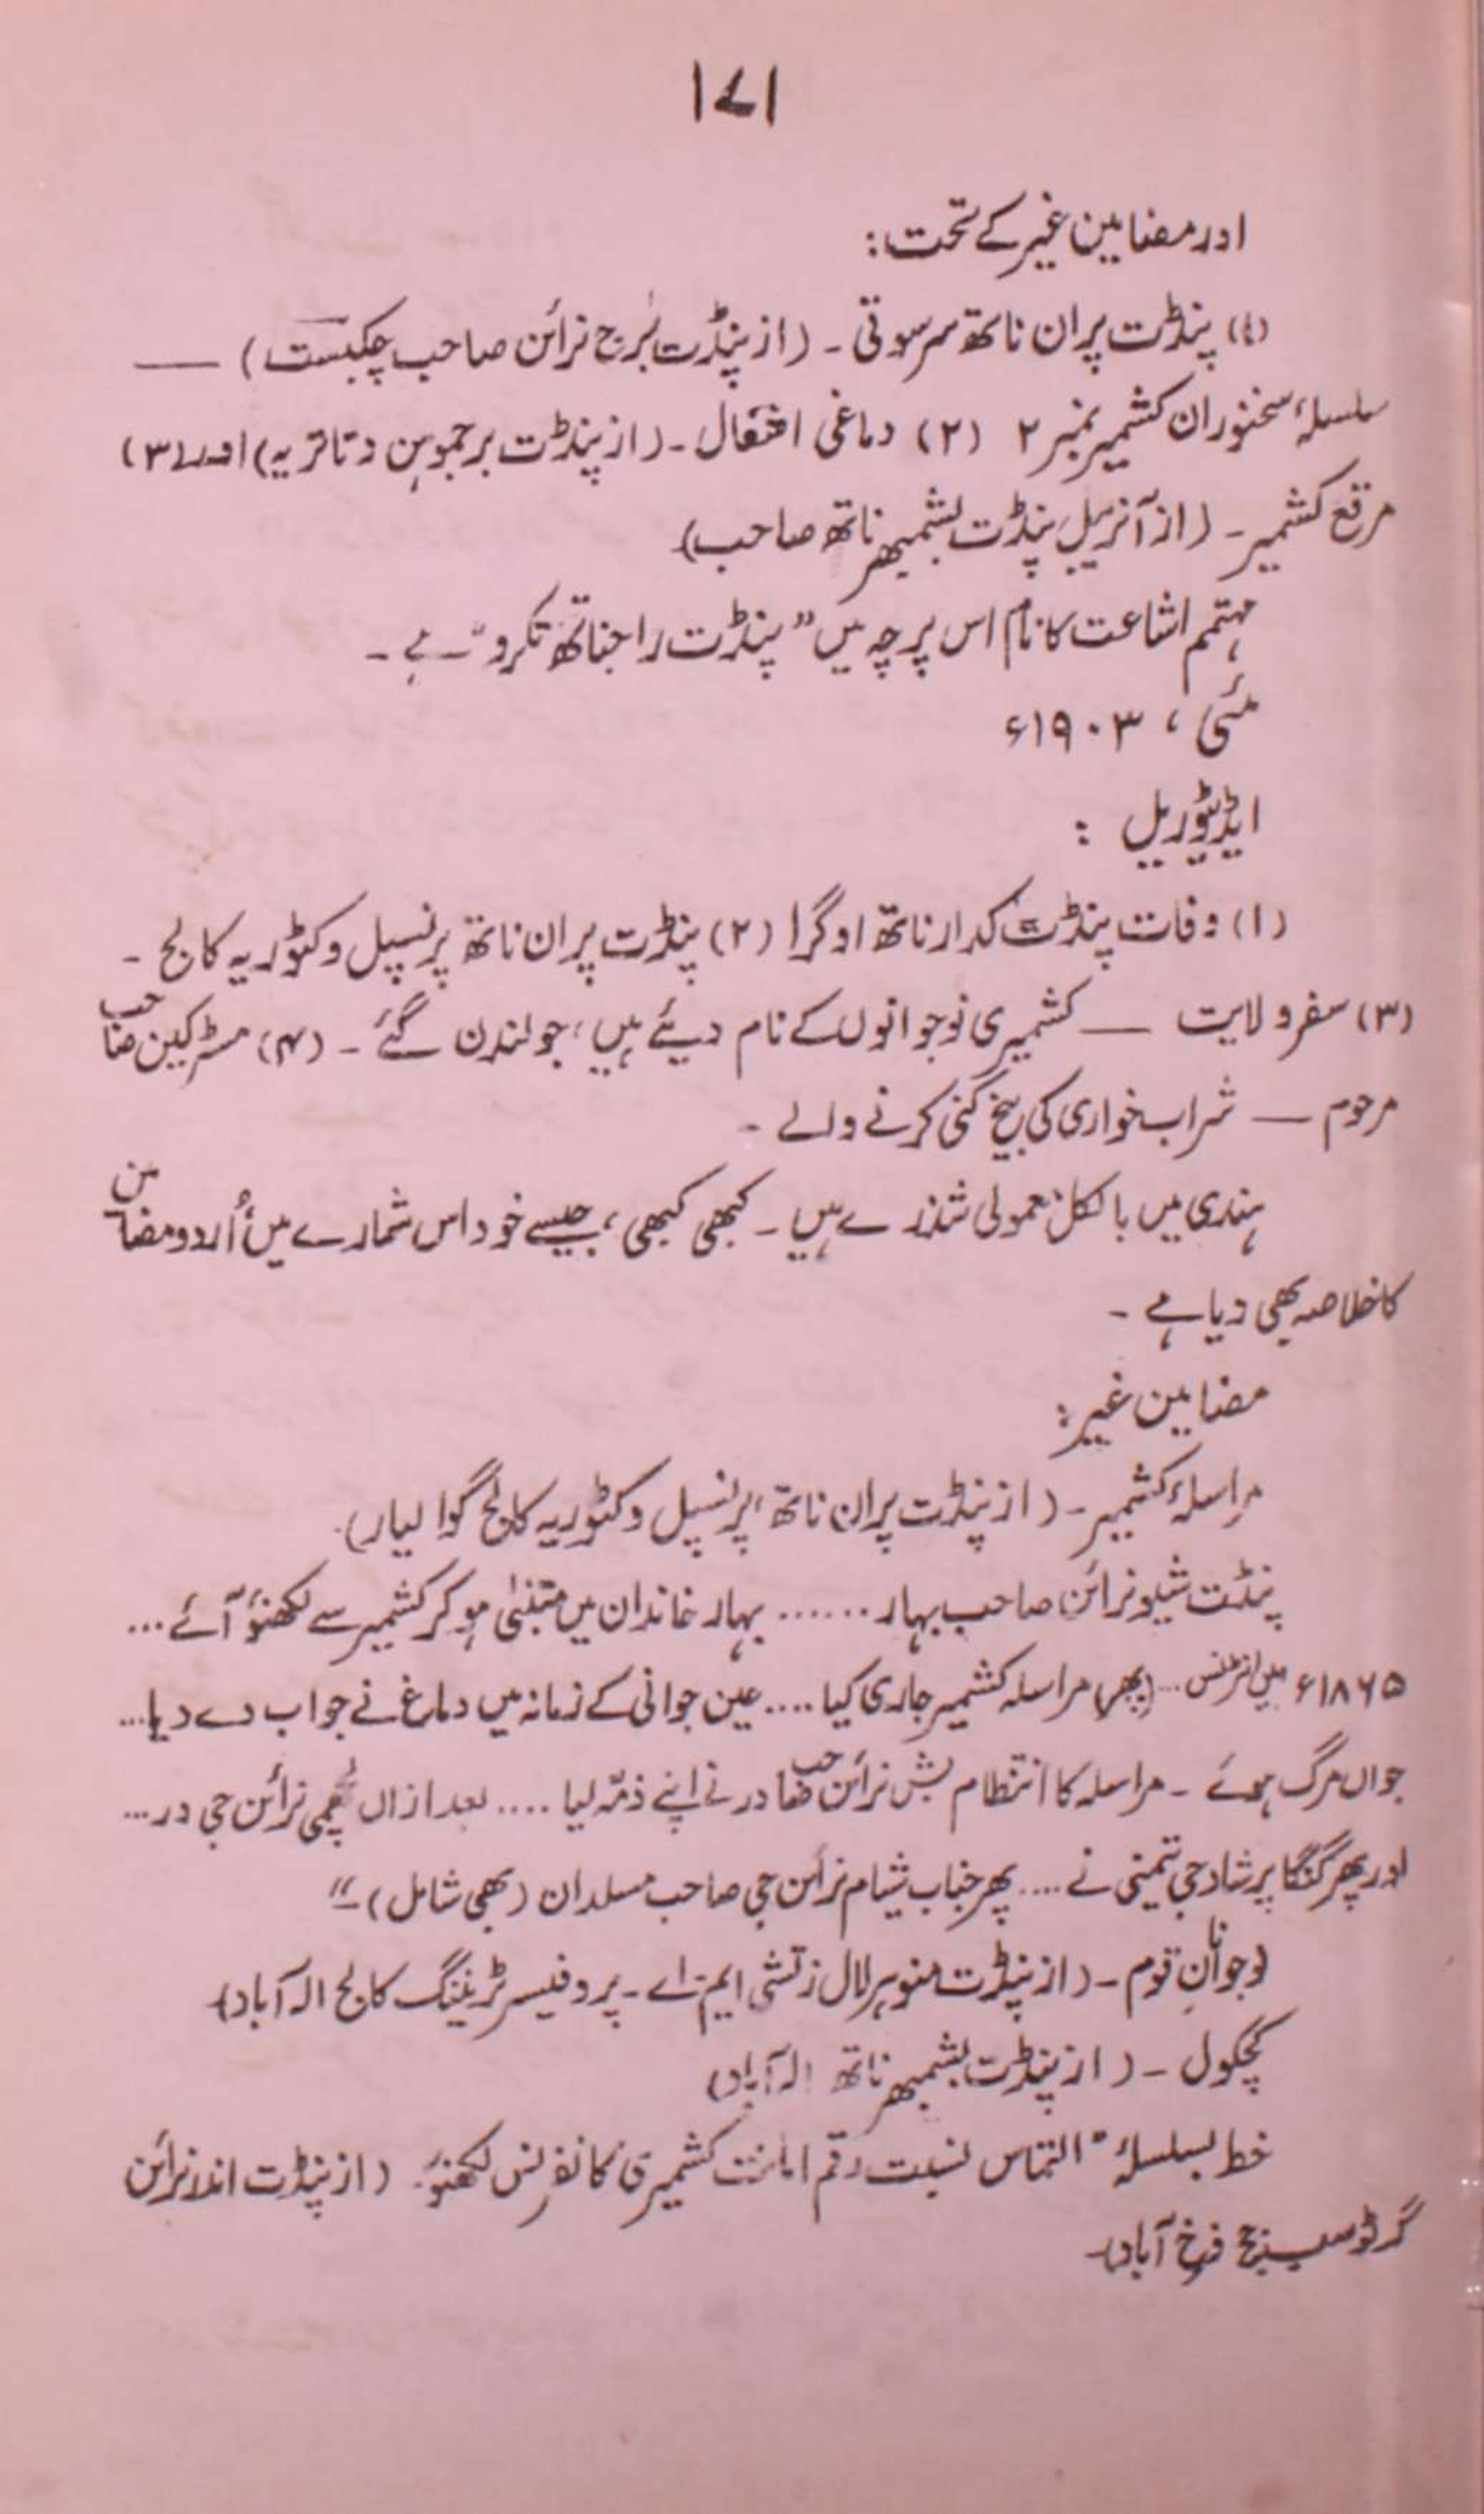 ۱۷۱
اور مضامین غیر کے تحت:
(۱) پنڈت پران ناتھ سرسوتی ۔ (از پنڈت برج نرائن صاحب چکبست) ——
سلسلۂ سخنوران کشمیر نمبر ۲ (۲) دماغی افتعال ۔ (از پنڈت برجموہن دتاتریہ) اور (۳)
مرقع کشمیر ۔ (از آنریبل پنڈت بشمبھر ناتھ صاحب)
مہتمم اشاعت کا نام اس پرچہ میں "پنڈت راجناتھ تکرو" ہے ۔
مئی ، ۱۹۰۳ء
ایڈیٹوریل :
(۱) وفات پنڈت کدار ناتھ اوگرا (۲) پنڈت پران ناتھ پرنسپل وکٹوریہ کالج ۔
(۳) سفر ولایت —— کشمیری نوجوانوں کے نام دیئے ہیں ، جو لندن گئے ۔ (۴) مسٹر کین صاحب
مرحوم —— شراب خواری کی بیخ کنی کرنے والے ۔
ہندی میں بالکل معمولی شذرے ہیں ۔ کبھی کبھی ، جیسے خود اس شمارے میں اُردو مضامین
کا خلاصہ بھی دیا ہے ۔
مضامین غیر :
مراسلۂ کشمیر ۔ (از پنڈت پران ناتھ ، پرنسپل وکٹوریہ کالج گوالیار)۔
پنڈت شیو نرائن صاحب بہار ...... بہار خاندان میں متبنیٰ ہو کر کشمیر سے لکھنؤ آئے ...
۱۸۶۵ء میں انٹرنس ... (پھر) مراسلہ کشمیر جاری کیا .... عین جوانی کے زمانہ میں دماغ نے جواب دے دیا ...
جواں مرگ ہوئے ۔ مراسلہ کا انتظام بشن نرائن صاحب در نے اپنے ذمّہ لیا .... بعد ازاں لچھمی نرائن جی در ...
اور پھر گنگا پرشاد جی تیمنی نے .... پھر جناب شیام نرائن جی صاحب مسلدان (بھی شامل) ۔"
نوجوانانِ قوم ۔ (از پنڈت منوہر لال زتشی ایم اے ۔ پروفیسر ٹریننگ کالج الہ آباد)
کچکول ۔ (از پنڈت بشمبھر ناتھ الہ آباد)
خط بسلسلۂ "التماس نسبت رقم امانت کشمیری کانفرنس لکھنؤ ۔ (از پنڈت اندر نرائن
گرٹو سب جج فرخ آباد)۔